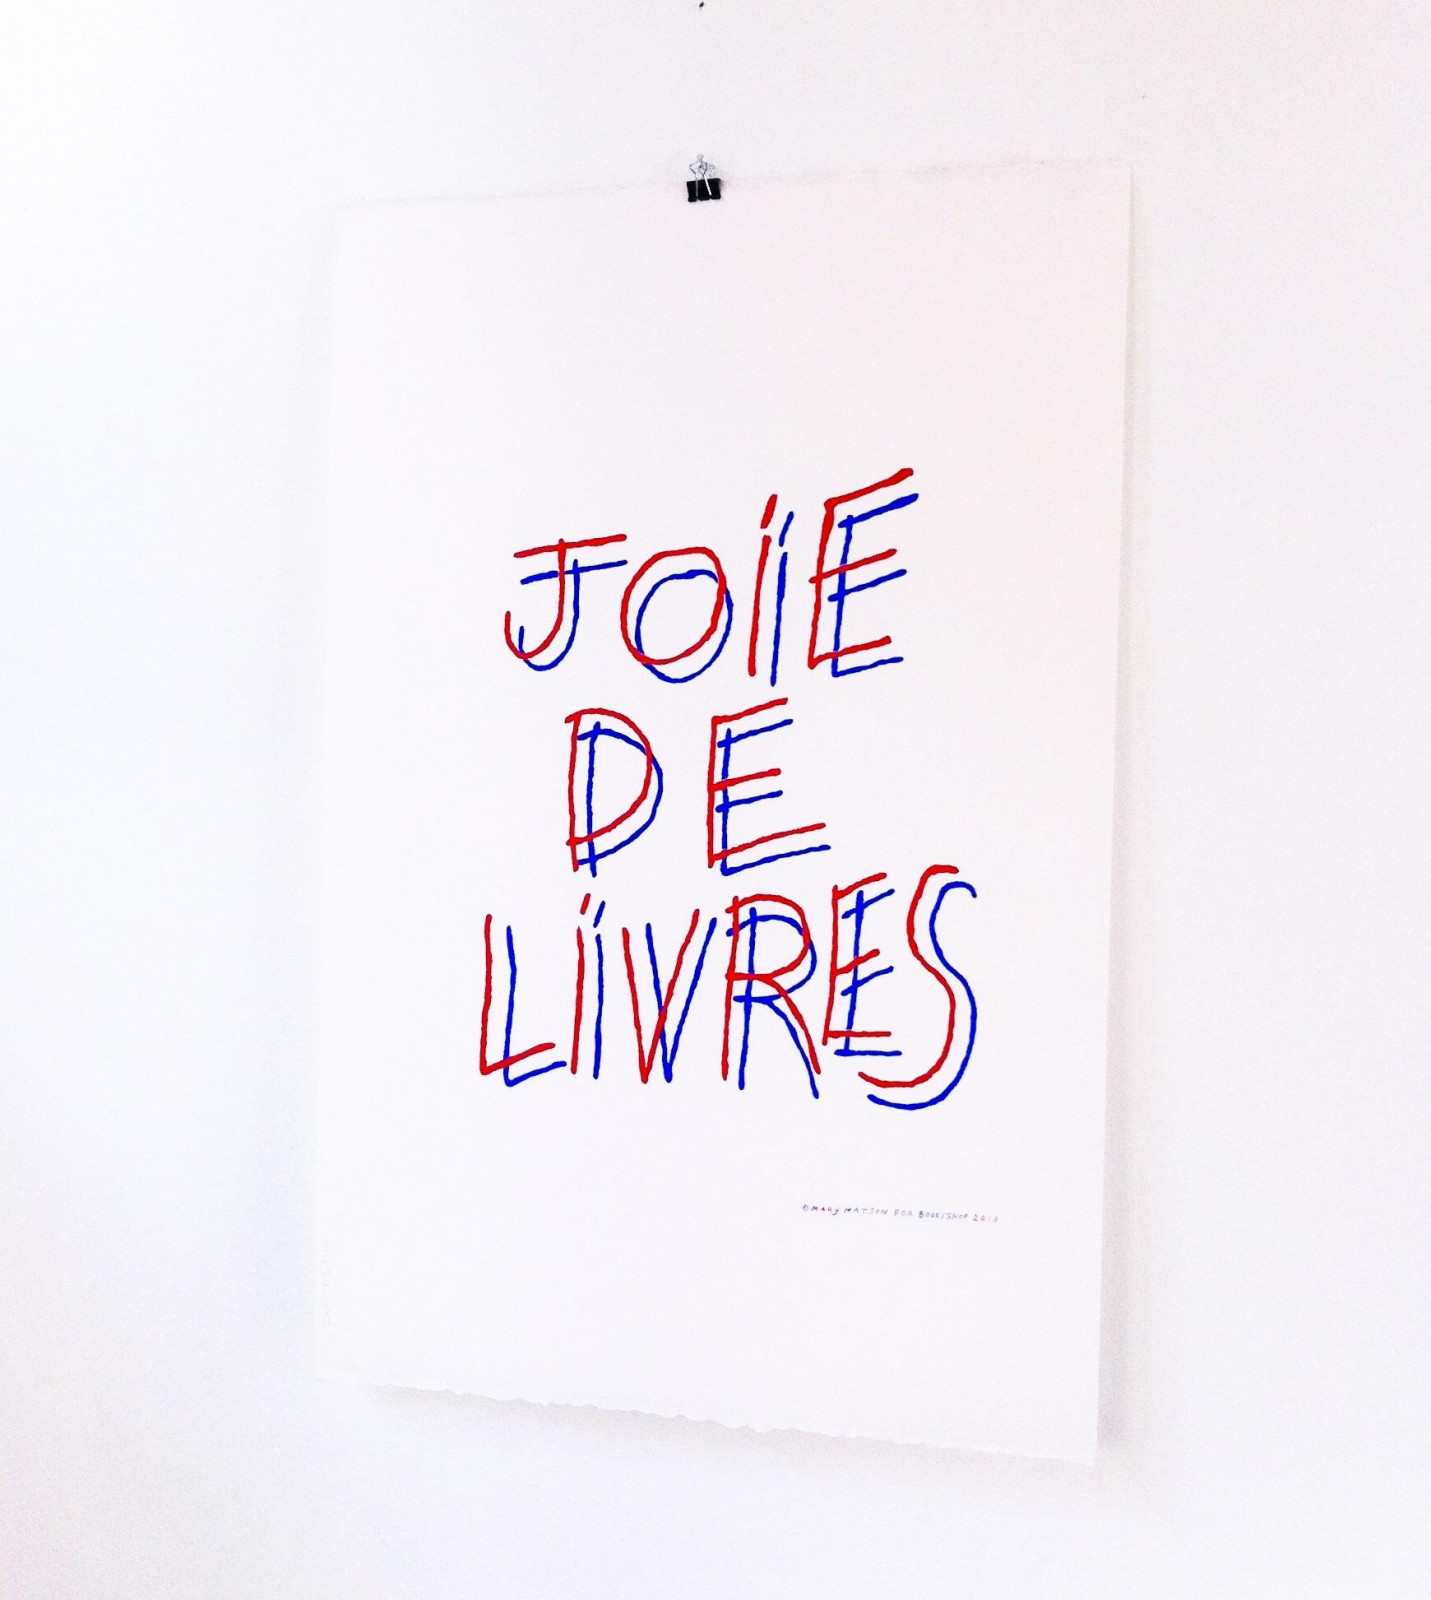 JOiE
DE
LiVRES
© MARY MATSON FOR BOOK/SHOP 2013